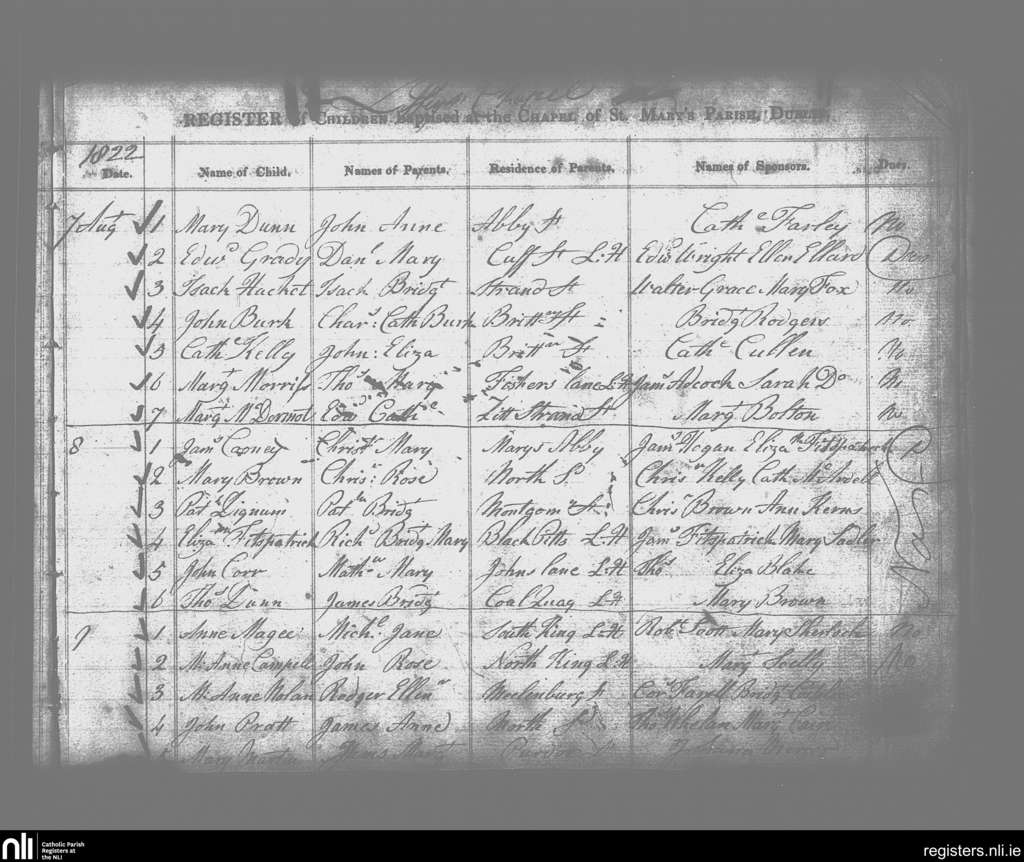 Chapel
REGISTER of CHILDREN Baptised at the CHAPEL, of St. MARY'S PARISH, DUBLIN.
1822
Date. Name of Child. Names of Parents. Residence of Parents. Names of Sponsors. Dues.
7 Aug 1 Mary Dunn John Anne Abby St Cathe Farley No
2 Edwd Grady Danl Mary Cuff St L:H Edwd Wright Ellen Ellard
3 Isack Hachet Isack Bridgt Strand St Walter Grace Mary Fox No
4 John Burk Chars: Cath Burk Brittn St Bridgt Rodgers No
5 Cathe Kelly John: Eliza Brittn St Cathe Cullen No
6 Margt Morriss Thos Mary Fosters lane L:H Jams Adcock Sarah Do No
7 Margt McDermot Edwd Cathe Litt Strand St Margt Bolton No
8 1 Jams Christr Mary Marys Abby Jams Hogan Eliza Fitzpatrick
2 Mary Brown Chrisr Rose North S. Chrisr Kelly Cath McArdell
3 Patk Dignum Patk Bridgt Montgomy St. Chrisr Brown Ann Kerns
4 Elizath Fitzpatrick Richd Bridgt Mary Black Pitts L:H Jams Fitzpatrick Mary Sadler
5 John Corr Mathw Mary Johns lane L:H Thos Eliza Blake
6 Thos Dunn James Bridgt Coal Quay L:H Mary Brown
9 1 Anne Magee Michl: Jane South King L:H Robt Mary Sherlock No
2 M: Anne Campell John Rose North King L:H Margt No
3 M: Anne Nolan Rodger Ellen Meclenburg St Farell Bridgt
4 John Pratt James Anne North S. Thos Whelan Margt
5 Mary Martin James Margt
nli Catholic Parish
Registers at
the NLI
registers.nli.ie